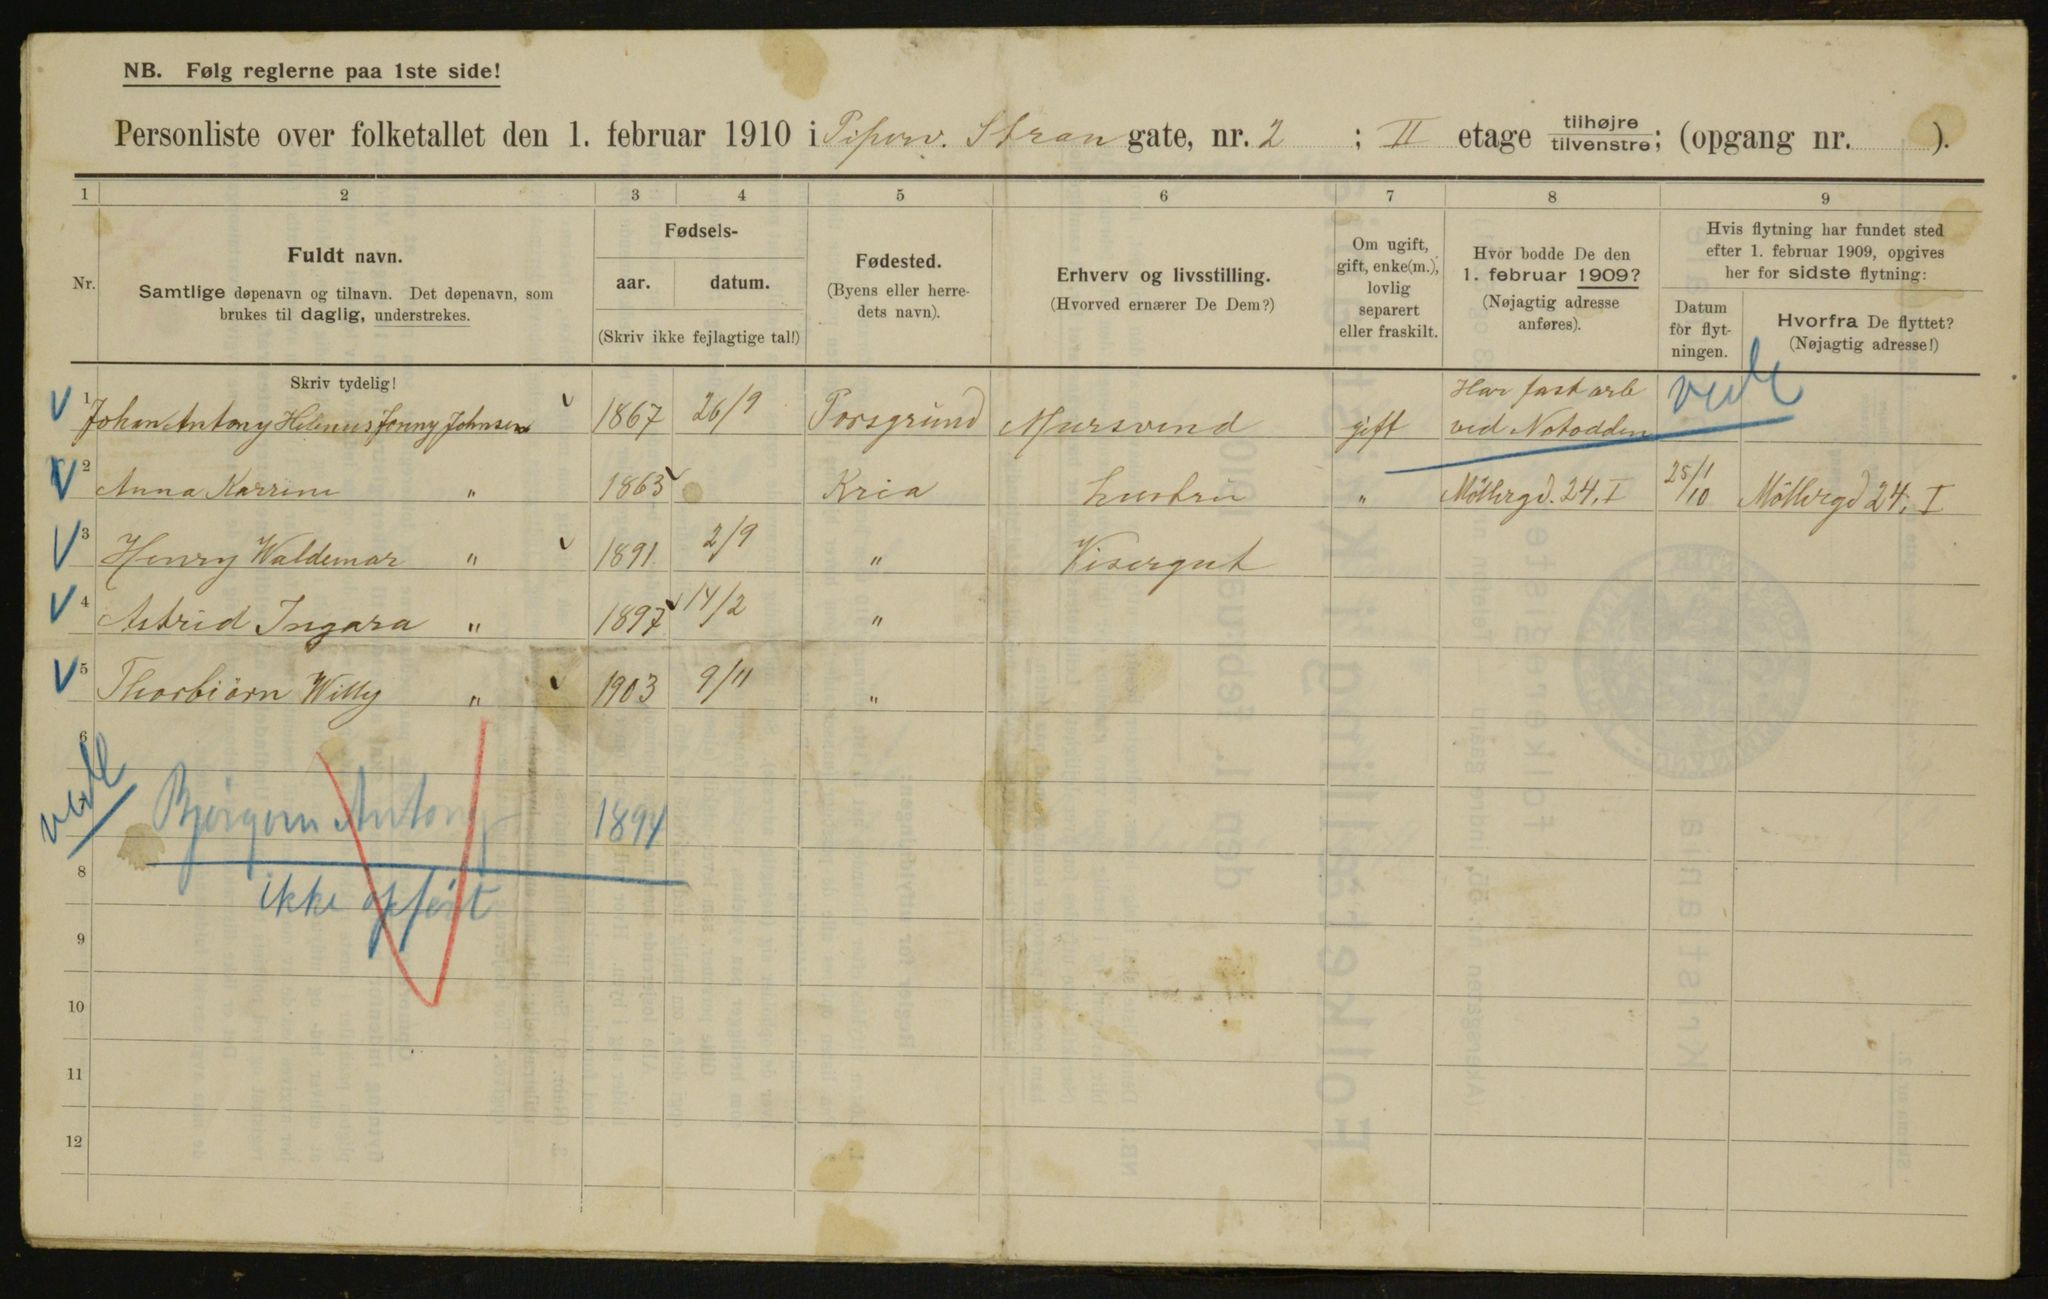 NB. Følg reglerne paa 1ste side!
Personliste over folketallet den 1. februar 1910 i Piperv. Stran gate, nr. 2 ; II etage tilhøjre tilvenstre; (opgang nr. ).
1 2 3 4 5 6 7 8 9
Nr.
Fuldt navn.
Samtlige døpenavn og tilnavn. Det døpenavn, som
brukes til daglig, understrekes.
Fødsels-
aar. datum.
(Skriv ikke fejlagtige tal!)
Fødested.
(Byens eller herre-
dets navn).
Erhverv og livsstilling.
(Hvorved ernærer De Dem?)
Om ugift,
gift, enke(m.),
lovlig
separert
eller fraskilt.
Hvor bodde De den
1. februar 1909?
(Nøjagtig adresse
anføres).
Hvis flytning har fundet sted
efter 1. februar 1909, opgives
her for sidste flytning:
Datum
for flyt-
ningen.
Hvorfra De flyttet?
(Nøjagtig adresse!)
Skriv tydelig!
1 Johan Antony Helenius Jonny Johnsen 1867 26/9 Porsgrund Mursvend gift Har fast arb
ved Notodden
2 Anna Karrine " 1863 Kria hustru " Möllergd. 24, I 25/1 10 Möllergd 24, I
3 Henry Waldemar " 1891 2/9 " Visergut
4 Astrid Ingara " 1897 14/2 "
5 Thorbiörn Willy " 1903 9/11 "
6
Antony 1894
8
ikke opført
9
10
11
12